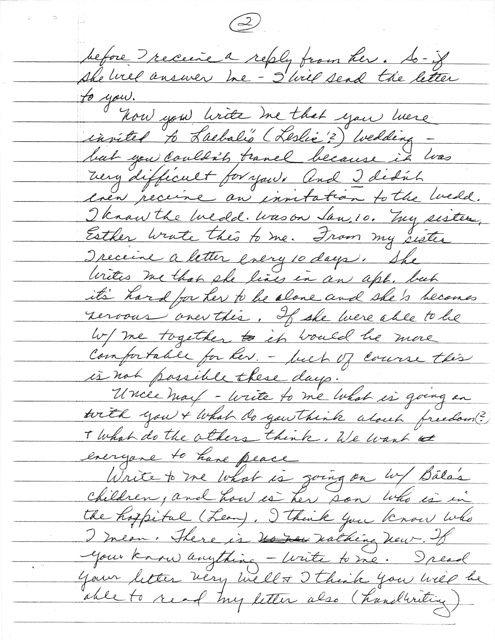 2
before I receive a reply from her. So-if
she will answer me - I will send the letter
to you.
Now you write me that you were
invited to Laebale's (Leslie?) wedding -
but you couldn't travel because it was
very difficult for you. And I didn't
even receive an invitation to the wedd.
I know the wedd. was on Jan, 10. My sister,
Esther wrote this to me. From my sister
I receive a letter every 10 days. She
writes me that she lives in an apt. but
it's hard for her to be alone and she's becomes
nervous over this. If she were able to be
w/ me together it would be more
comfortable for her. - but of course this
is not possible these days.
Uncle Max - write to me what is going on
with you + what do you think about freedom(?)
+ what do the others think. We want
everyone to have peace
Write to me what is going on w/ Băla's
children, and how is her son who is in
the hospital (Leon). I think you know who
I mean. There is nothing new. If
you know anything - write to me. I read
your letter very well + I think you will be
able to read my letter also (handwriting)